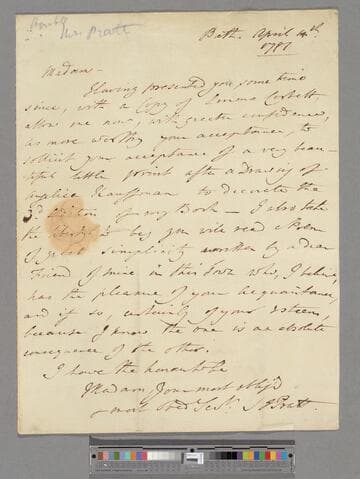 Mr Pratt
Bath. April 4th.
1781
Madam -
Having presented you some time
since, with a Copy of Emma Corbett,
allow me now, with greater confidence,
as more worthy your acceptance, to
solicit your acceptance of a very beau-
tiful little print after a drawing of
Angelica Kauffman to decorate the
3d Edition of my Book - I also take
the liberty to beg you will read a Poem
of great simplicity written by a dear
Friend of mine in this Town who, I believe,
has the pleasure of your acquaintance,
and if so, certainly of your esteem,
because I know the one is an absolute
consequence of the other.
I have the honour to be
Madam, your most oblig'd
& most obed. Sert. S J Pratt.